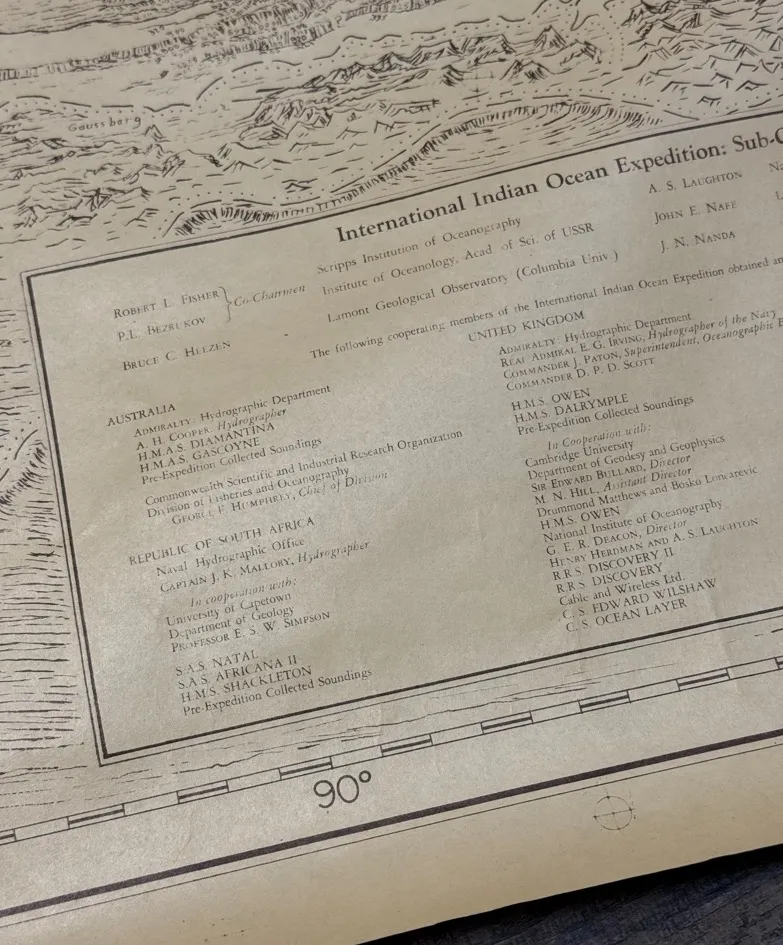 Gaussberg
International Indian Ocean Expedition: Sub-
ROBERT L. FISHER
P.L. BEZRUKOV
Co-Chairmen
BRUCE C. HEEZEN
Scripps Institution of Oceanography
Institute of Oceanology, Acad. of Sci. of USSR
Lamont Geological Observatory (Columbia Univ.)
A. S. LAUGHTON
JOHN E. NAFE
J. N. NANDA
The following cooperating members of the International Indian Ocean Expedition obtained
AUSTRALIA
ADMIRALTY: Hydrographic Department
A. H. COOPER, Hydrographer
H.M.A.S. DIAMANTINA
H.M.A.S. GASCOYNE
Pre-Expedition Collected Soundings
Commonwealth Scientific and Industrial Research Organization
Division of Fisheries and Oceanography
GEORGE F. HUMPHREY, Chief of Division
REPUBLIC OF SOUTH AFRICA
Naval Hydrographic Office
CAPTAIN J. K. MALLORY, Hydrographer
In cooperation with:
University of Capetown
Department of Geology
PROFESSOR E. S. W. SIMPSON
S.A.S. NATAL
S.A.S. AFRICANA II
H.M.S. SHACKLETON
Pre-Expedition Collected Soundings
UNITED KINGDOM
ADMIRALTY: Hydrographic Department
REAR ADMIRAL E. G. IRVING, Hydrographer of the Navy
COMMANDER J. PATON, Superintendent, Oceanographic
COMMANDER D. P. D. SCOTT
H.M.S. OWEN
H.M.S. DALRYMPLE
Pre-Expedition Collected Soundings
In Cooperation with:
Cambridge University
Department of Geodesy and Geophysics
SIR EDWARD BULLARD, Director
M. N. HILL, Assistant Director
Drummond Matthews and Bosko Loncarevic
H.M.S. OWEN
National Institute of Oceanography
G. E. R. DEACON, Director
HENRY HERDMAN AND A. S. LAUGHTON
R.R.S. DISCOVERY II
R.R.S. DISCOVERY
Cable and Wireless Ltd.
C. S. EDWARD WILSHAW
C. S. OCEAN LAYER
90°